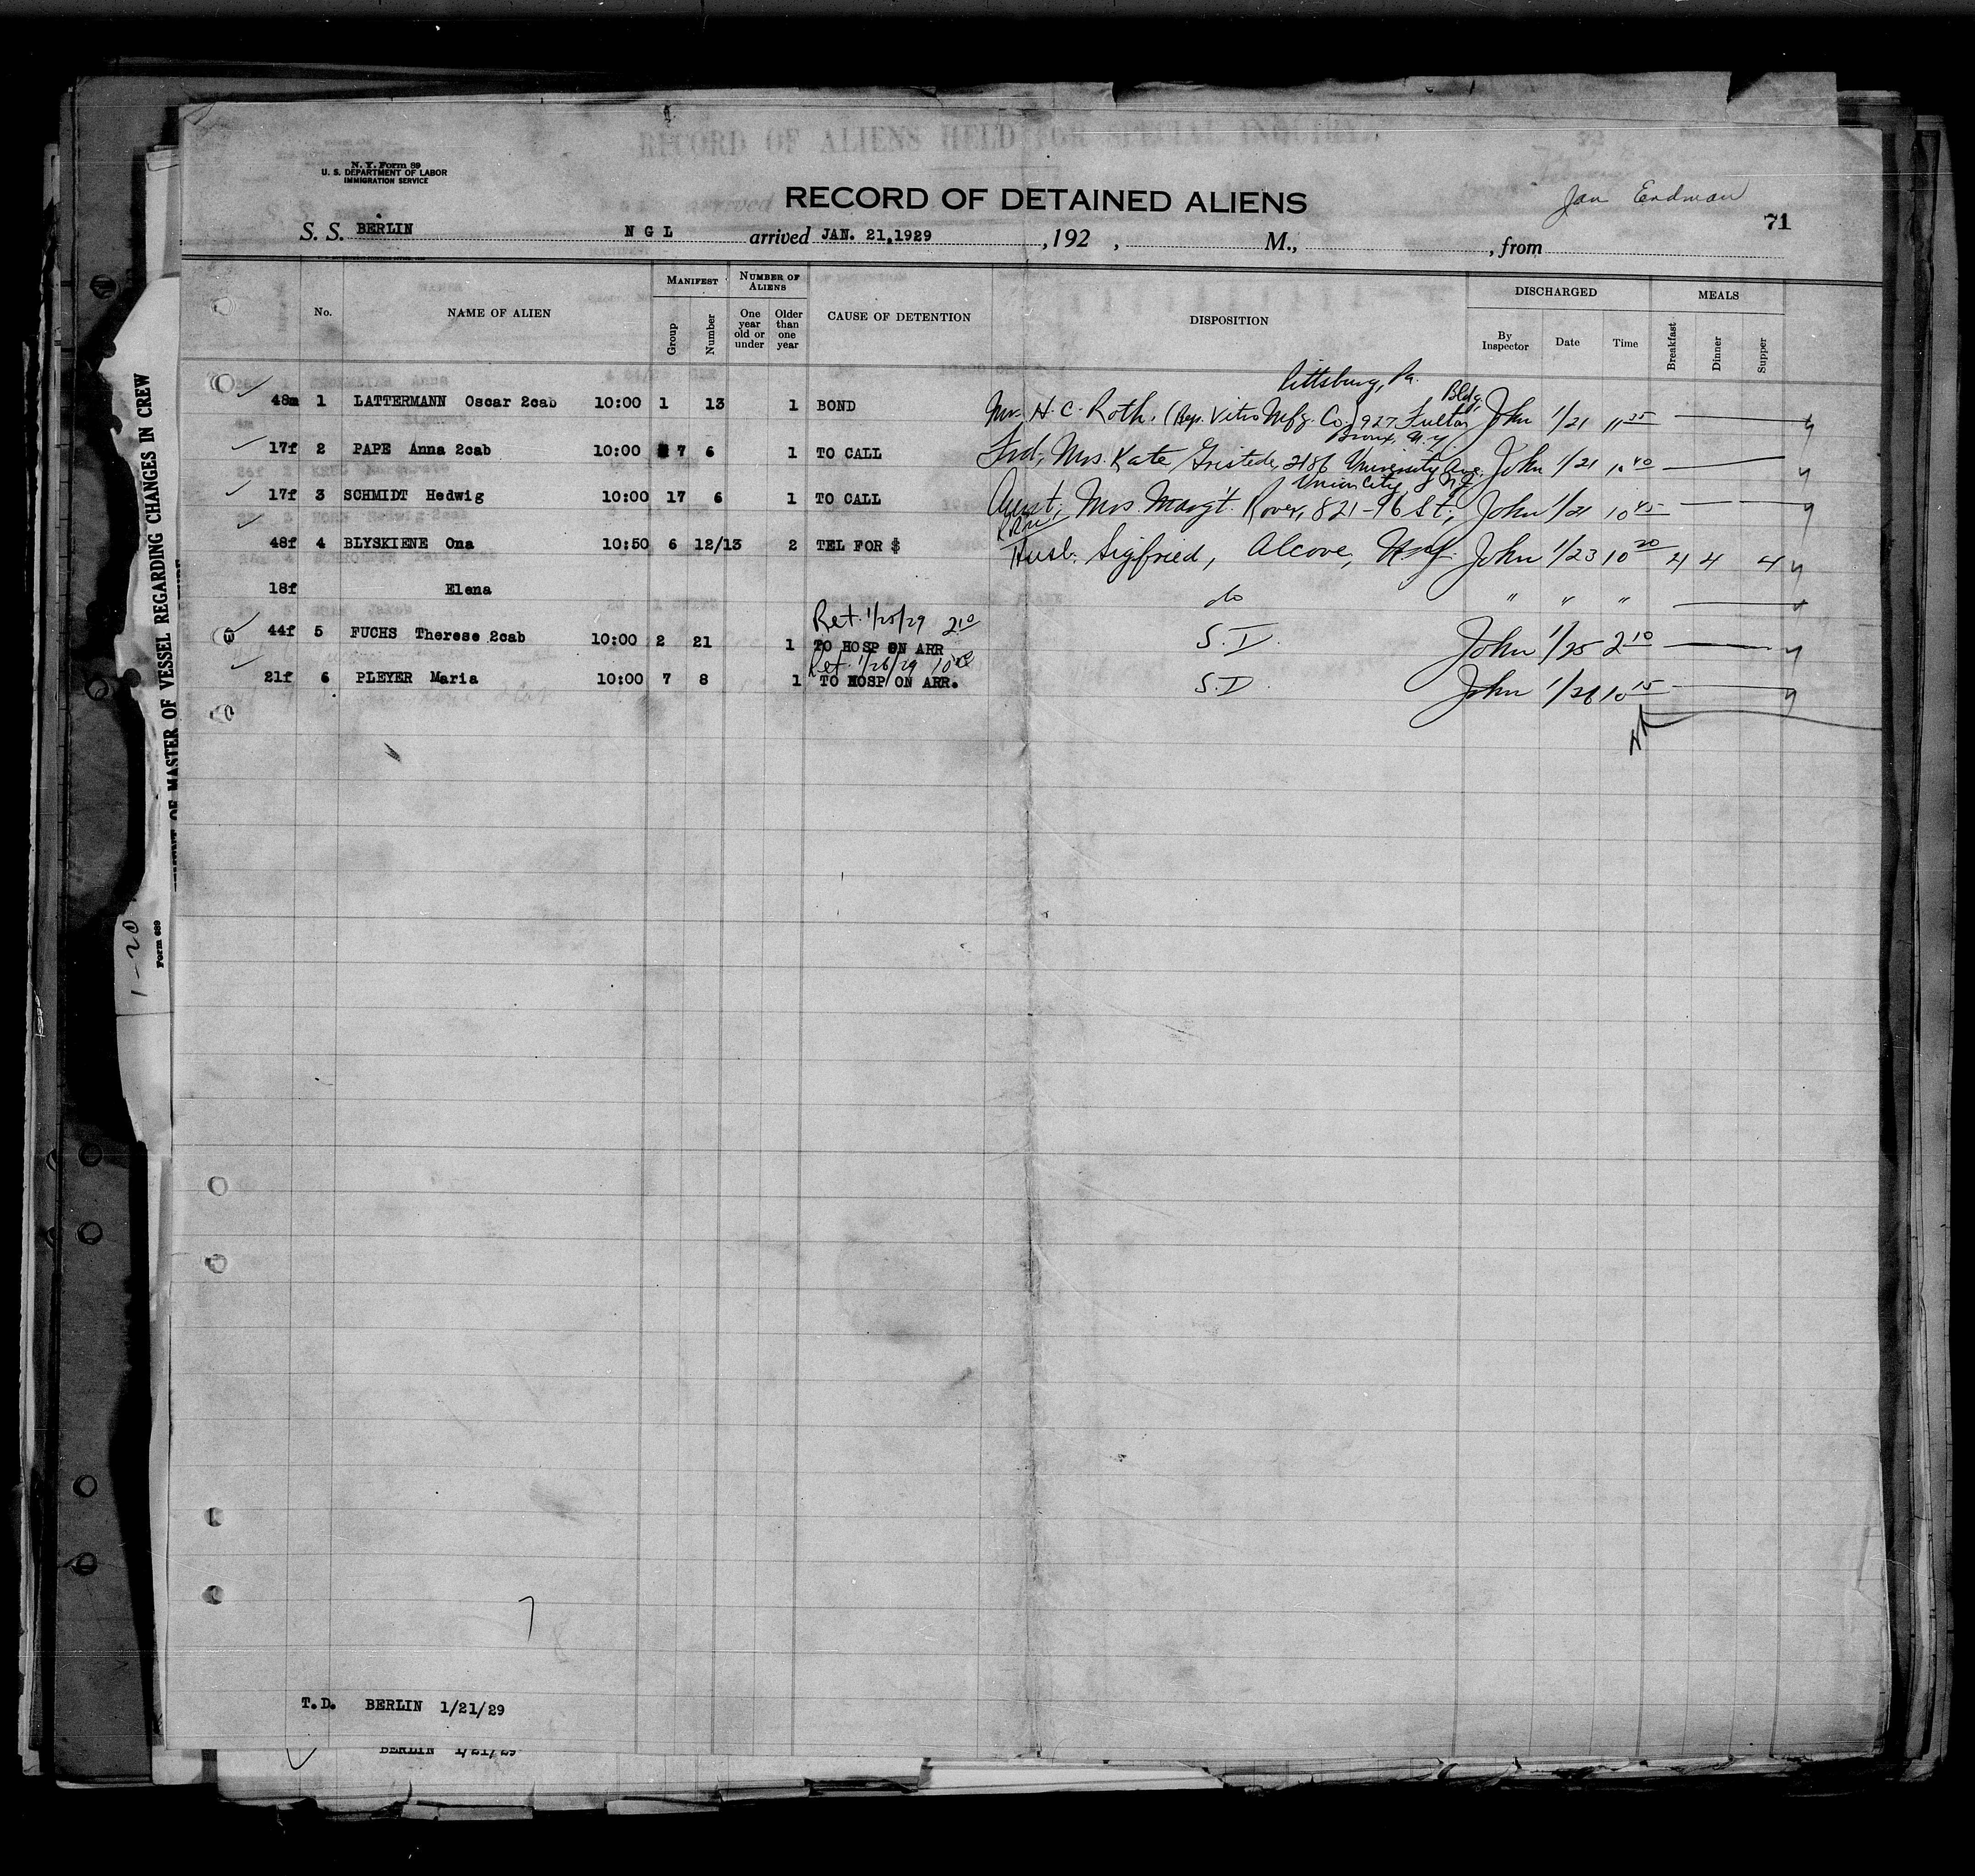 RECORD OF ALIENS HELD FOR SPECIAL INQUIRY
N. Y. Form 89
U. S. DEPARTMENT OF LABOR
IMMIGRATION SERVICE
RECORD OF DETAINED ALIENS
Jan Erdman
71
S. S. BERLIN N G L arrived JAN. 21,1929 , 192 , M., , from
No. NAME OF ALIEN MANIFEST Group Number NUMBER OF ALIENS One year old or under Older than one year CAUSE OF DETENTION DISPOSITION DISCHARGED By Inspector Date Time MEALS Breakfast Dinner Supper
Pittsburg, Pa.
Bldg.
48m 1 LATTERMANN Oscar 2cab 10:00 1 13 1 BOND Mr. H. C. Roth, (Rep. Vitro Mfg. Co.) 927 Fulton John 1/21 11 25
Bronx, N.Y.
17f 2 PAPE Anna 2cab 10:00 7 6 1 TO CALL Frd; Mrs. Kate Gristede, 2186 University Ave. John 1/21 10 40
Union City, N.J.
17f 3 SCHMIDT Hedwig 10:00 17 6 1 TO CALL Aunt, Mrs. Marg't. Rover, 821-96 St; John 1/21 10 45
48f 4 BLYSKIENE Ona 10:50 6 12/13 2 TEL FOR $ Husb. Sigfried, Alcove, N.Y. John 1/23 10 20 4 4 4
18f Elena do " " "
Ret. 1/25/29 2 10
44f 5 FUCHS Therese 2cab 10:00 2 21 1 TO HOSP ON ARR S. I. John 1/25 2 10
Ret. 1/26/29
21f 6 PLEYER Maria 10:00 7 8 1 TO HOSP ON ARR. S. I. John 1/26 10 15
7
T.D. BERLIN 1/21/29
BERLIN 1/21/29
OF MASTER OF VESSEL REGARDING CHANGES IN CREW
1-20
Form 689